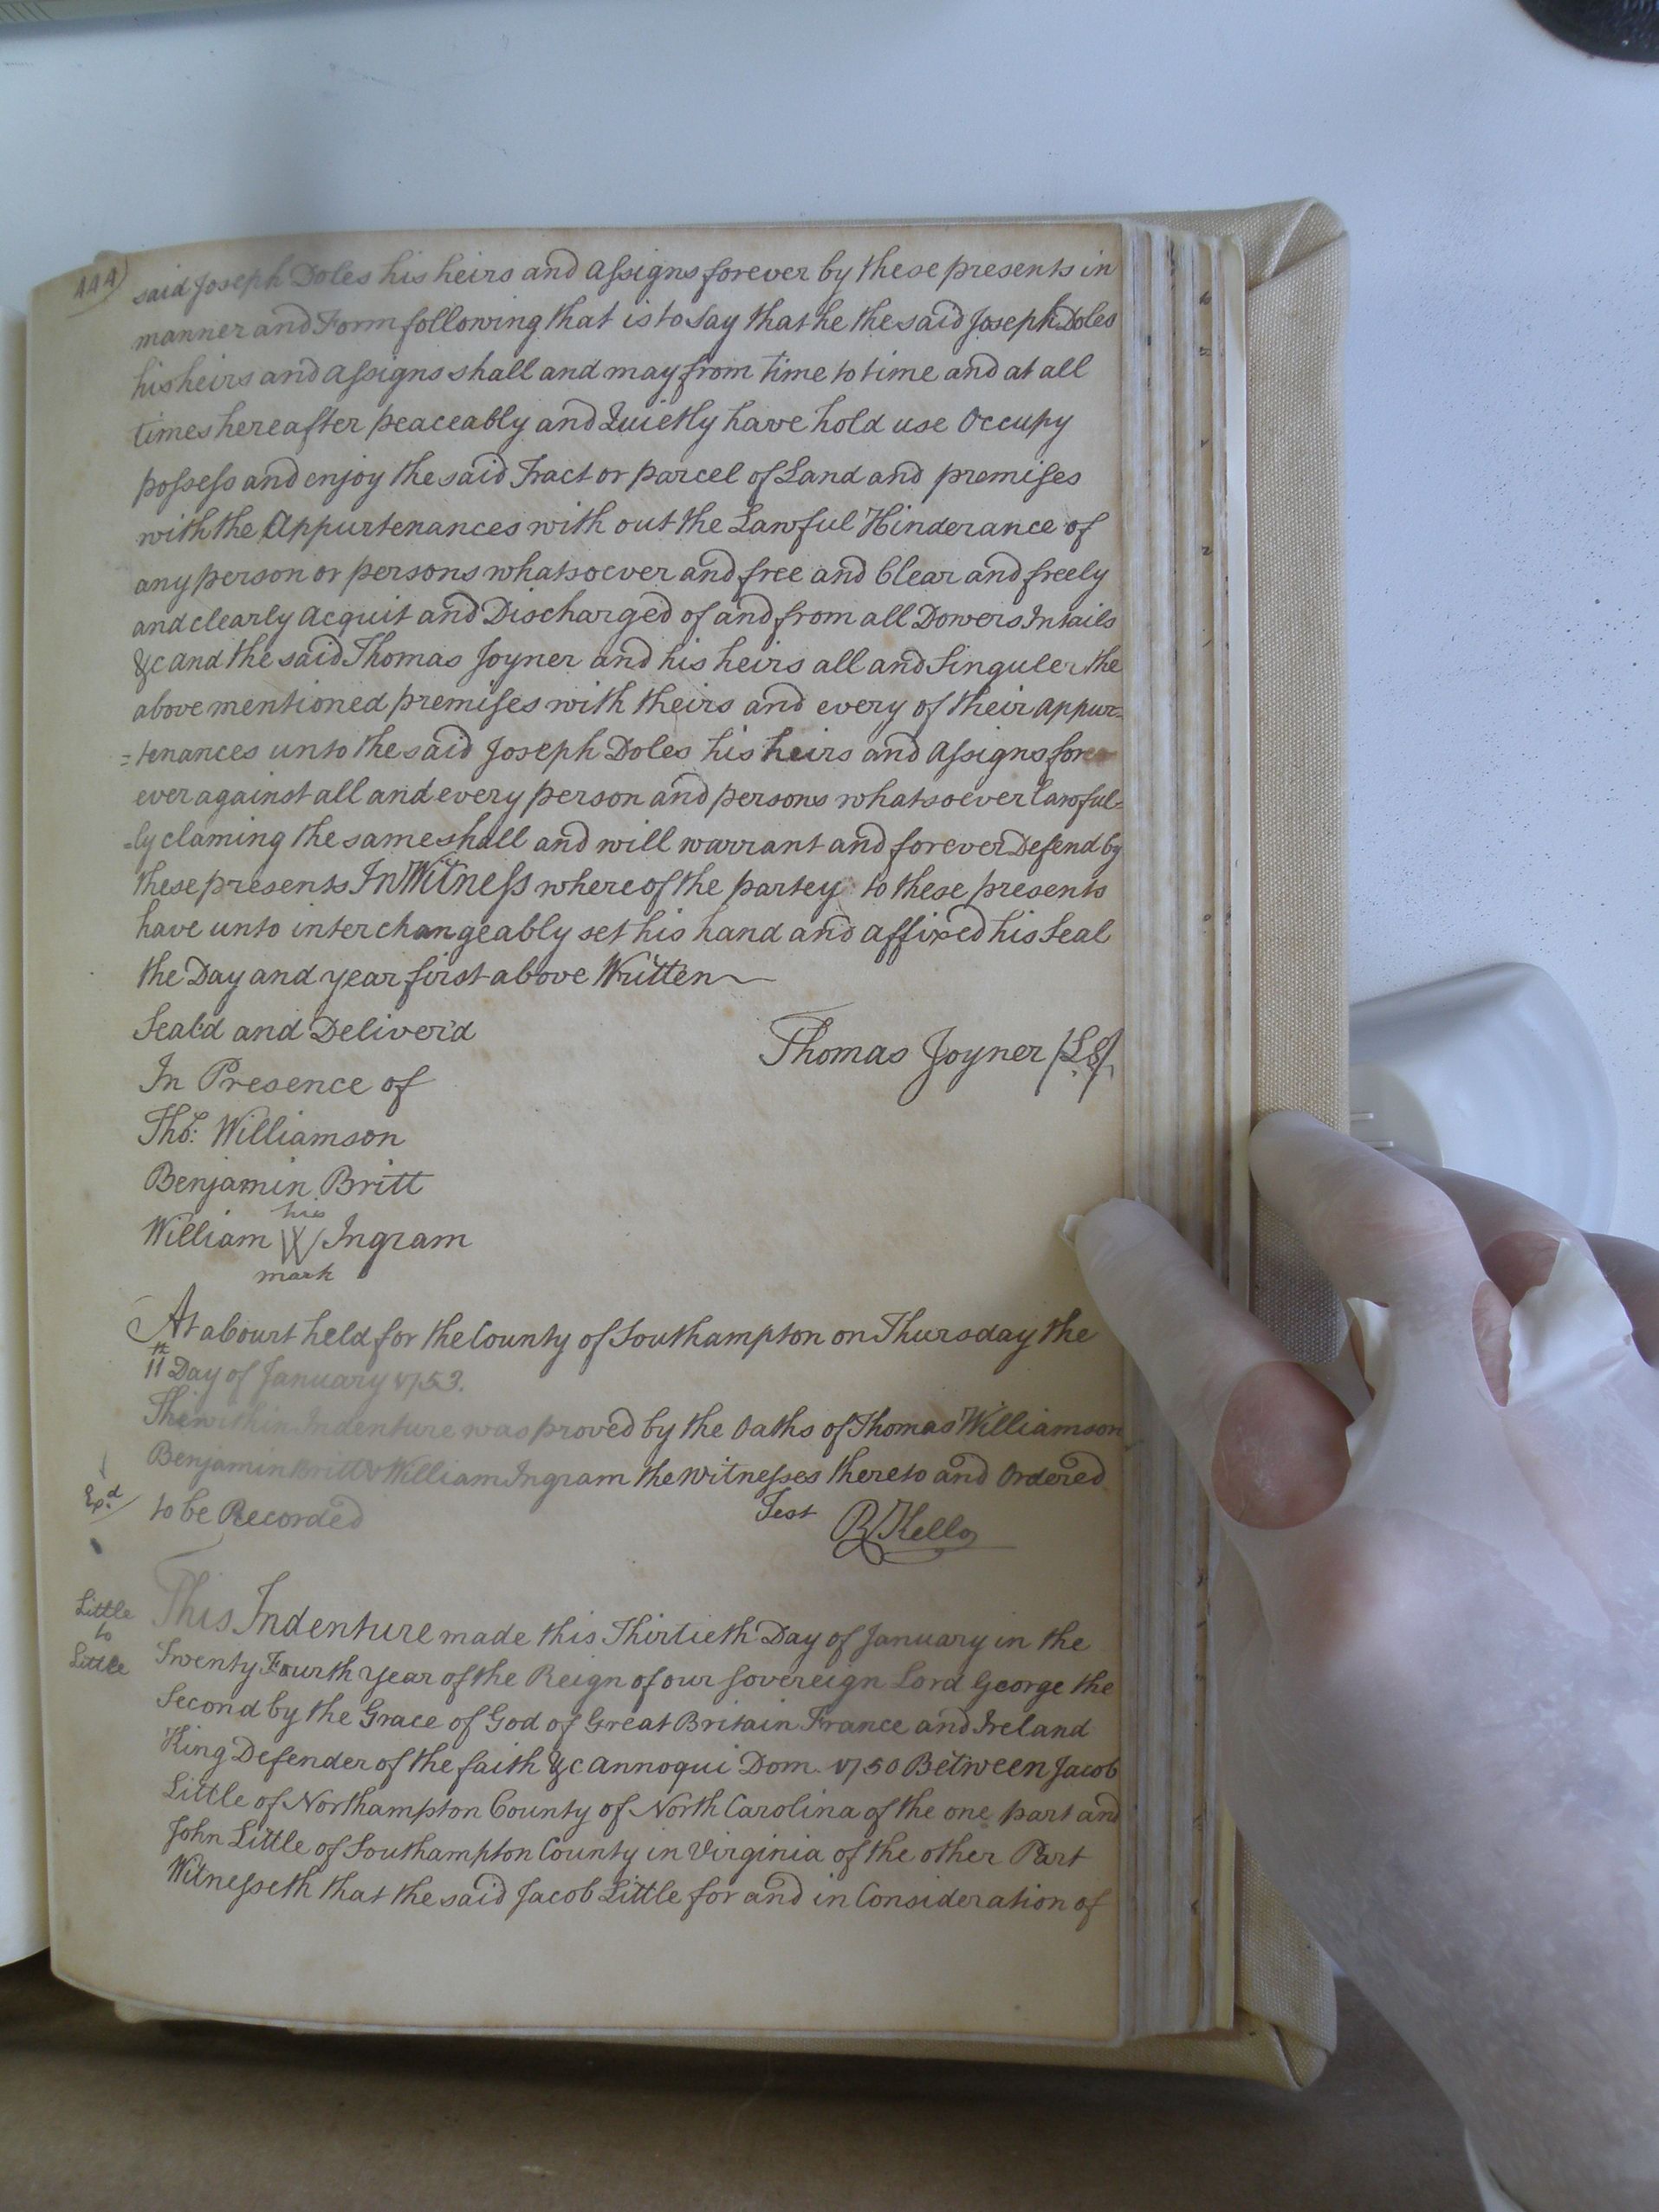 444)
said Joseph Doles his heirs and assigns forever by these presents in
manner and Form following that is to say that he the said Joseph Doles
his heirs and assigns shall and may from time to time and at all
times hereafter peaceably and Quietly have hold use Occupy
possess and enjoy the said Tract or parcel of Land and premises
with the Appurtenances with out the Lawful Hinderance of
any person or persons whatsoever and free and Clear and freely
and clearly acquit and Discharged of and from all Dowers Intails
&c and the said Thomas Joyner and his heirs all and Singuler the
above mentioned premises with theirs and every of their appur=
=tenances unto the said Joseph Doles his heirs and assigns for
ever against all and every person and persons whatsoever Lawful=
=ly claming the same shall and will warrant and forever Defend by
these presents In Witness whereof the partey to these presents
have unto interchangeably set his hand and affixed his Seal
the Day and year first above Written
Seal'd and Deliver'd
Thomas Joyner (LS)
In Presence of
Tho.s: Williamson
Benjamin Britt
his
William W Ingram
mark
At a Court held for the County of Southampton on Thursday the
11th Day of January 1753.
The within Indenture was proved by the Oaths of Thomas Williamson
Benjamin Britt & William Ingram the witnesses thereto and Ordered
Ex.d
to be Recorded
Test R Kello
Little
to
Little
This Indenture made this Thirtieth Day of January in the
Twenty Fourth year of the Reign of our Sovereign Lord George the
Second by the Grace of God of Great Britain France and Ireland
King Defender of the faith &c annoqui Dom. 1750 Between Jacob
Little of Northampton County of North Carolina of the one part and
John Little of Southampton County in Virginia of the other Part
Witnesseth that the said Jacob Little for and in Consideration of